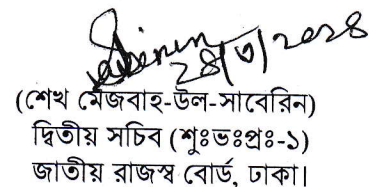 ২৪/৩/২০২৪
(শেখ মেজবাহ-উল-সাবেরিন)
দ্বিতীয় সচিব (শুঃভঃপ্রঃ-১)
জাতীয় রাজস্ব বোর্ড, ঢাকা।